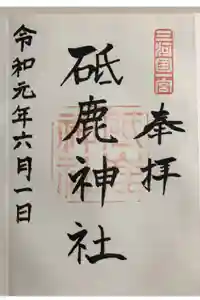 三河國一宮
奉拝
砥鹿神社
令和元年六月一日